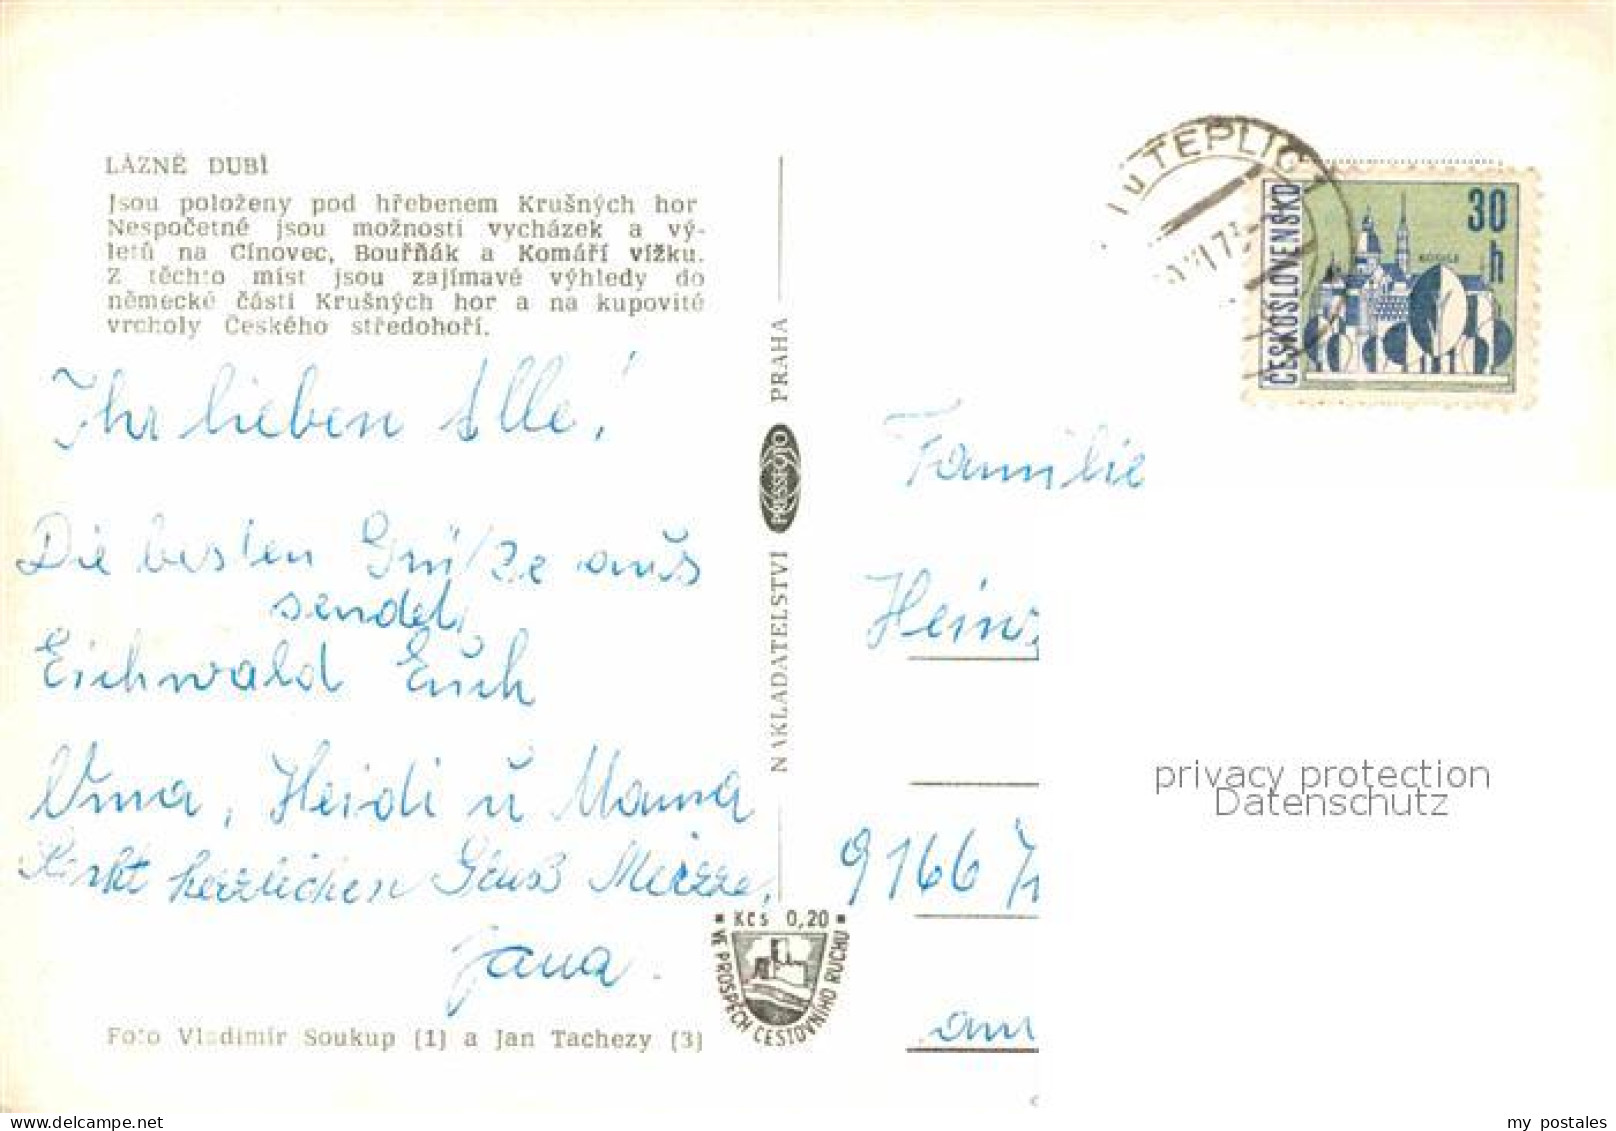 LÁZNĚ DUBÍ
Jsou položeny pod hřebenem Krušných hor
Nespočetné jsou možnosti vycházek a vý-
letů na Cínovec, Bouřňák a Komáří vížku.
Z těchto míst jsou zajímavé výhledy do
německé části Krušných hor a na kupovité
vrcholy Českého středohoří.
Ihr lieben Alle!
Die besten Grüße aus
sendet
Eichwald Euch
Oma, Heidi u Mama
herzlichen Gruß
Jana.
Foto Vladimír Soukup (1) a Jan Tachezy (3)
NAKLADATELSTVÍ PRESSFOTO PRAHA
Kčs 0,20
VE PROSPĚCH CESTOVNÍHO RUCHU
U TEPLIC
ČESKOSLOVENSKO
30 h
KOŠICE
Familie
Hein
9166
am
privacy protection
Datenschutz
delcampe.net
my_postales